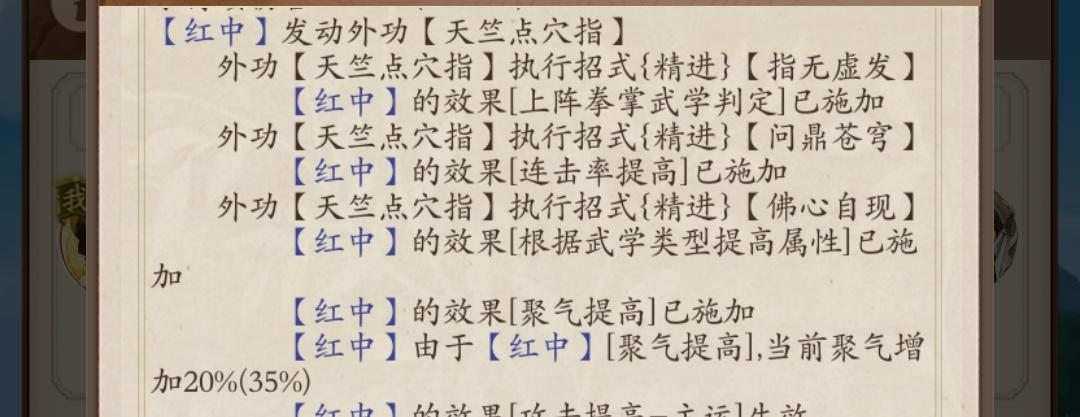 【红中】发动外功【天竺点穴指】
外功【天竺点穴指】执行招式{精进}【指无虚发】
【红中】的效果[上阵拳掌武学判定]已施加
外功【天竺点穴指】执行招式{精进}【问鼎苍穹】
【红中】的效果[连击率提高]已施加
外功【天竺点穴指】执行招式{精进}【佛心自现】
【红中】的效果[根据武学类型提高属性]已施
加
【红中】的效果[聚气提高]已施加
【红中】由于【红中】[聚气提高],当前聚气增
加20%(35%)
【红中】的效果[攻击提高
我